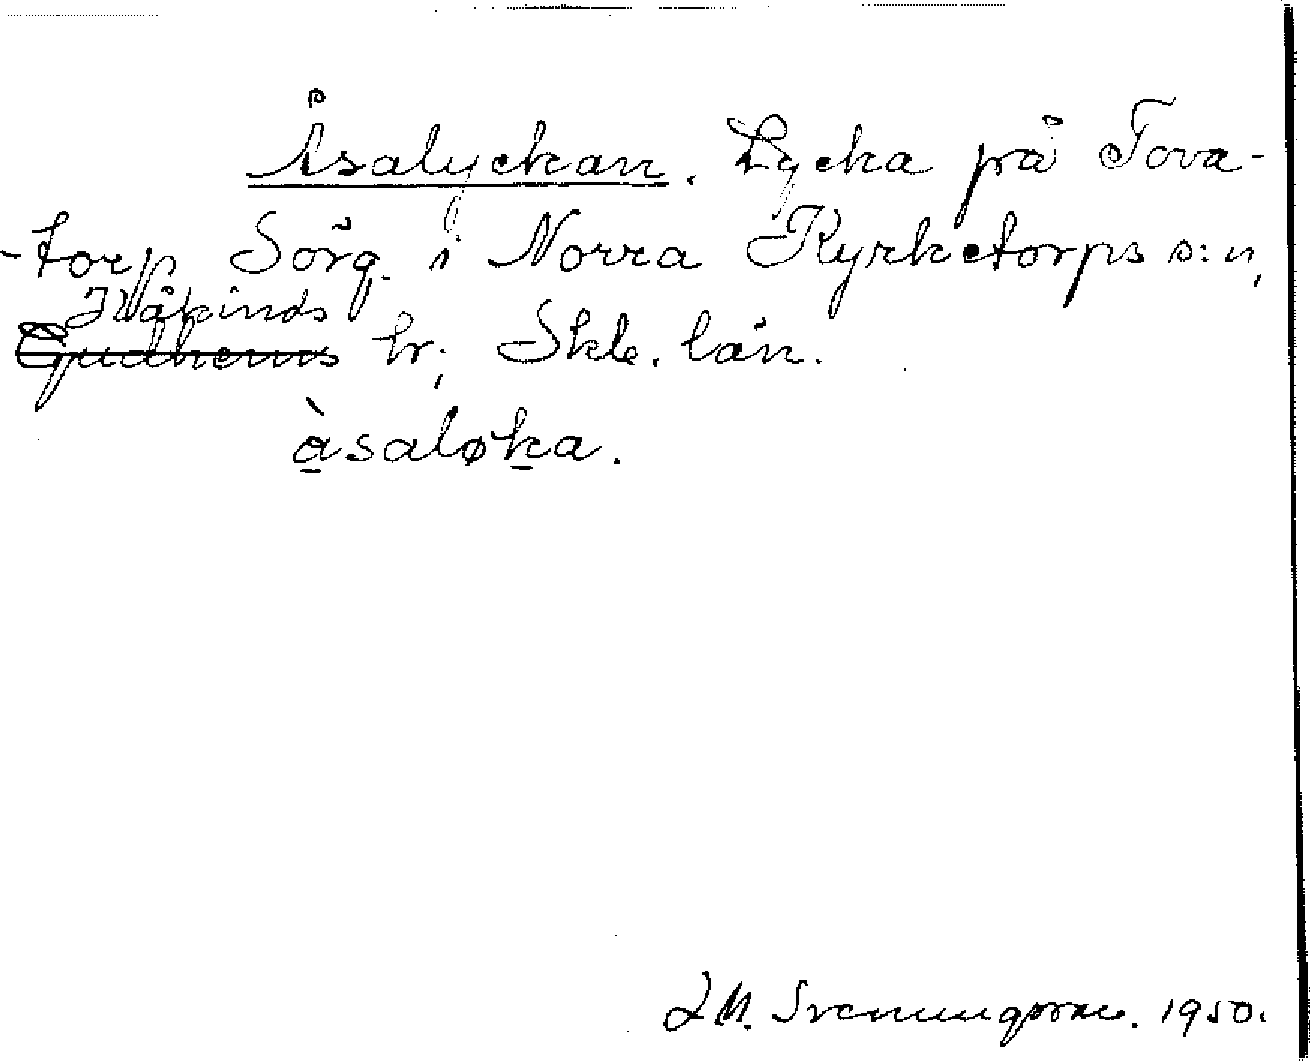 Åsalyckan. Lycka på Tova-
-torp Sörg. i Norra Kyrketorps s:n,
Kåkinds
Gudhems hr; Skb. län.
àsaløka.
J M. Svenungsson. 1950.